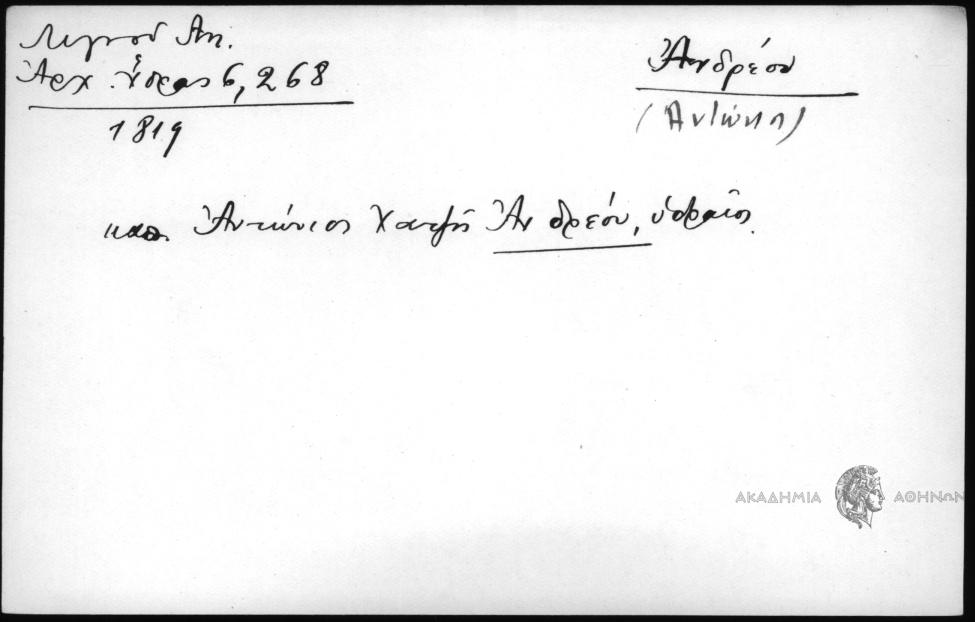 Λιγνοῦ Ἀν.
Ἀρχ. Ὕδρας 6, 268
1819
Ἀνδρέου
(Ἀντώνιος)
καπ. Ἀντώνιος Χατζῆ Ἀνδρέου, ὑδραῖος.
ΑΚΑΔΗΜΙΑ ΑΘΗΝΩΝ